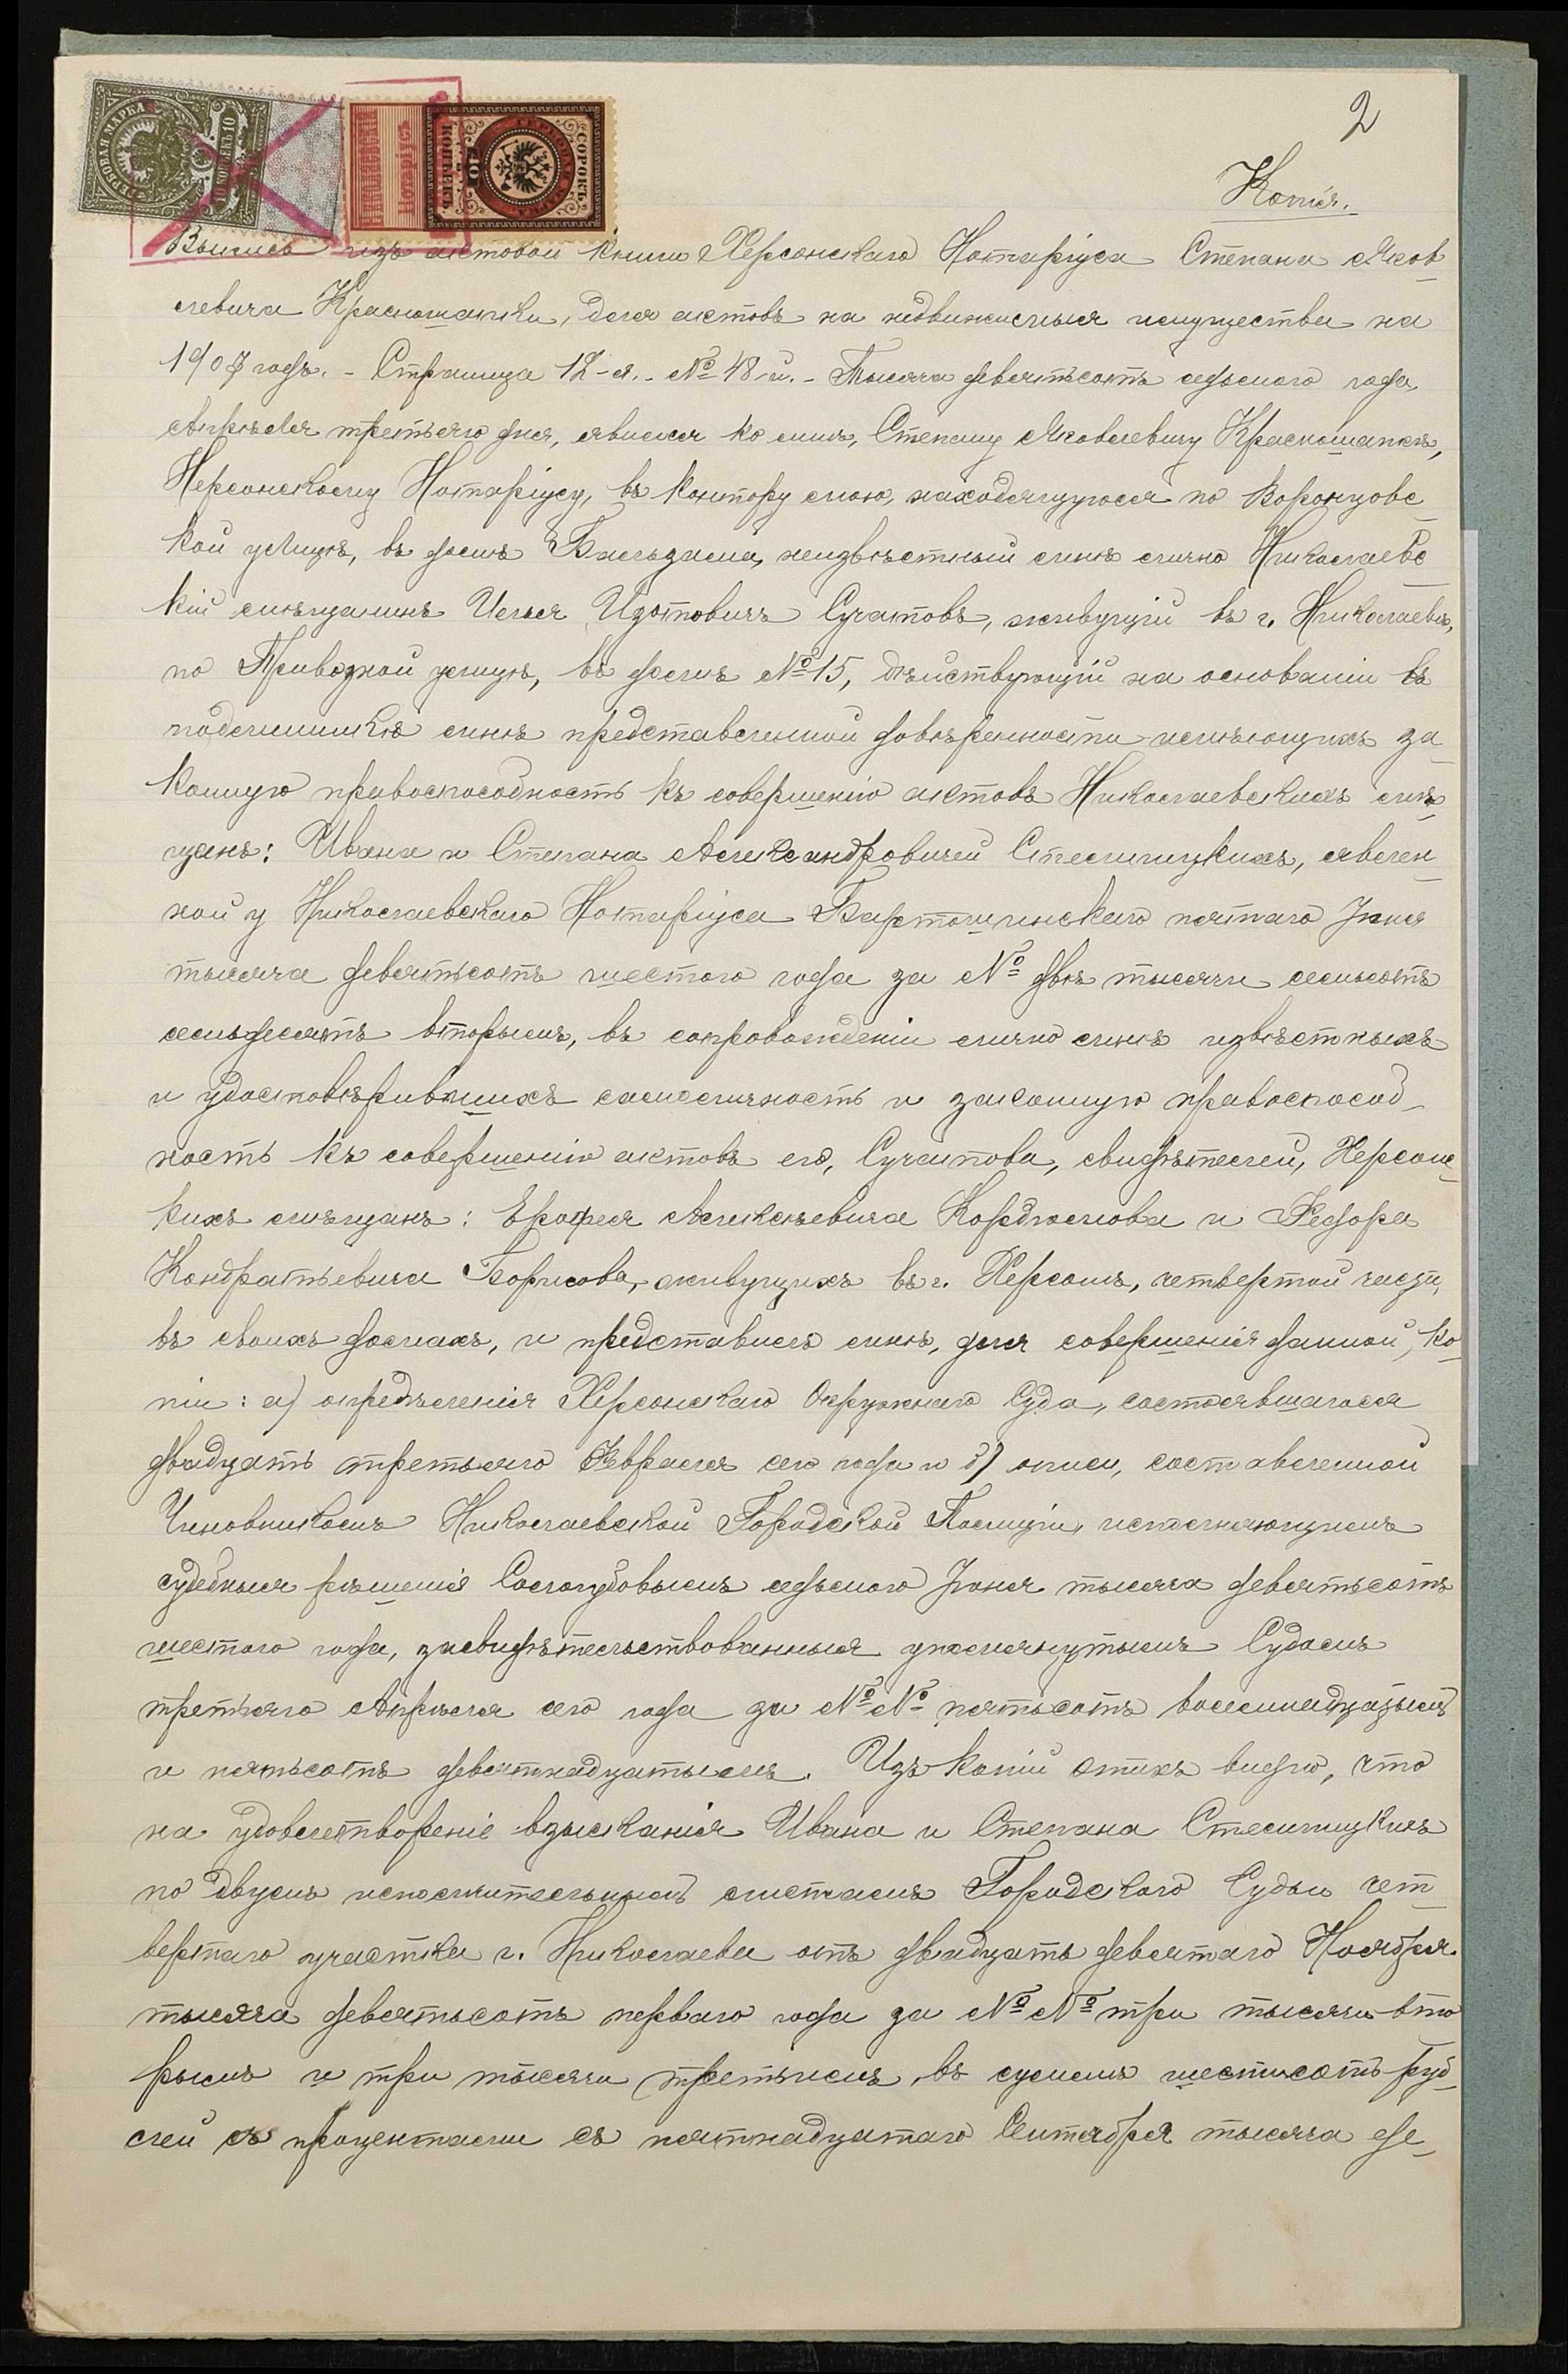 2
Копія.
ГЕРБОВАЯ МАРКА
10 КОПѢЕКЪ 10
СОРОКЪ
ГЕРБОВАЯ МАРКА
КОПѢЕКЪ
Выпись изъ актовой книги Херсонскаго Нотаріуса Степана Яков-
левича Красношапки, для актовъ на недвижимыя имущества на
1907 годъ. - Страница 12-я. - № 48-й. - Тысяча девятьсотъ седьмого года,
Апрѣля третьяго дня, явился ко мнѣ, Степану Яковлевичу Красношапкѣ,
Херсонскому Нотаріусу, въ контору мою, находящуюся по Воронцовс-
кой улицѣ, въ домѣ неизвѣстный мнѣ лично Николаевс-
кій мѣщанинъ Илья Изотовичъ Сучатовъ, живущій въ г. Николаевѣ,
по Привозной улицѣ, въ домѣ № 15, дѣйствующій на основаніи въ
подлинникѣ мнѣ представленной довѣренности имѣющихъ за-
конную правоспособность къ совершенію актовъ Николаевскихъ мѣ-
щанъ: Ивана и Степана Александровичей Стемпицкихъ, явлен-
ной у Николаевскаго Нотаріуса Бартошинскаго пятаго Іюня
тысяча девятьсотъ шестого года за № двѣ тысячи семьсотъ
семьдесятъ вторымъ, въ сопровожденіи лично мнѣ извѣстныхъ
и удостовѣрившихъ самоличность и законную правоспособ-
ность къ совершенію актовъ его, Сучатова, свидѣтелей, Херсонс-
кихъ мѣщанъ: Ерофея Алексѣевича и Федора
Кондратьевича Борисова, живущихъ въ г. Херсонѣ, четвертой части,
въ своихъ домахъ, и представилъ мнѣ, для совершенія данной, ко-
піи: а) опредѣленія Херсонскаго Окружнаго Суда, состоявшагося
двадцать третьяго Февраля сего года и б) описи, составленной
Чиновникомъ Николаевской Городской Полиціи, исполняющимъ
судебныя рѣшенія Сологубовымъ седьмого Іюня тысяча девятьсотъ
шестого года, засвидѣтельствованныя упомянутымъ Судомъ
третьяго Апрѣля сего года за №№ пятьсотъ восемнадцатымъ
и пятьсотъ девятнадцатымъ. Изъ копій этихъ видно, что
на удовлетвореніе взысканія Ивана и Степана Стемпицкихъ
по двумъ исполнительнымъ листамъ Городского Судьи чет-
вертаго участка г. Николаева отъ двадцать девятаго Ноября
тысяча девятьсотъ перваго года за №№ три тысячи вто-
рымъ и три тысячи третьимъ, въ суммѣ шестисотъ руб-
лей съ процентами съ пятнадцатаго Сентября тысяча де-